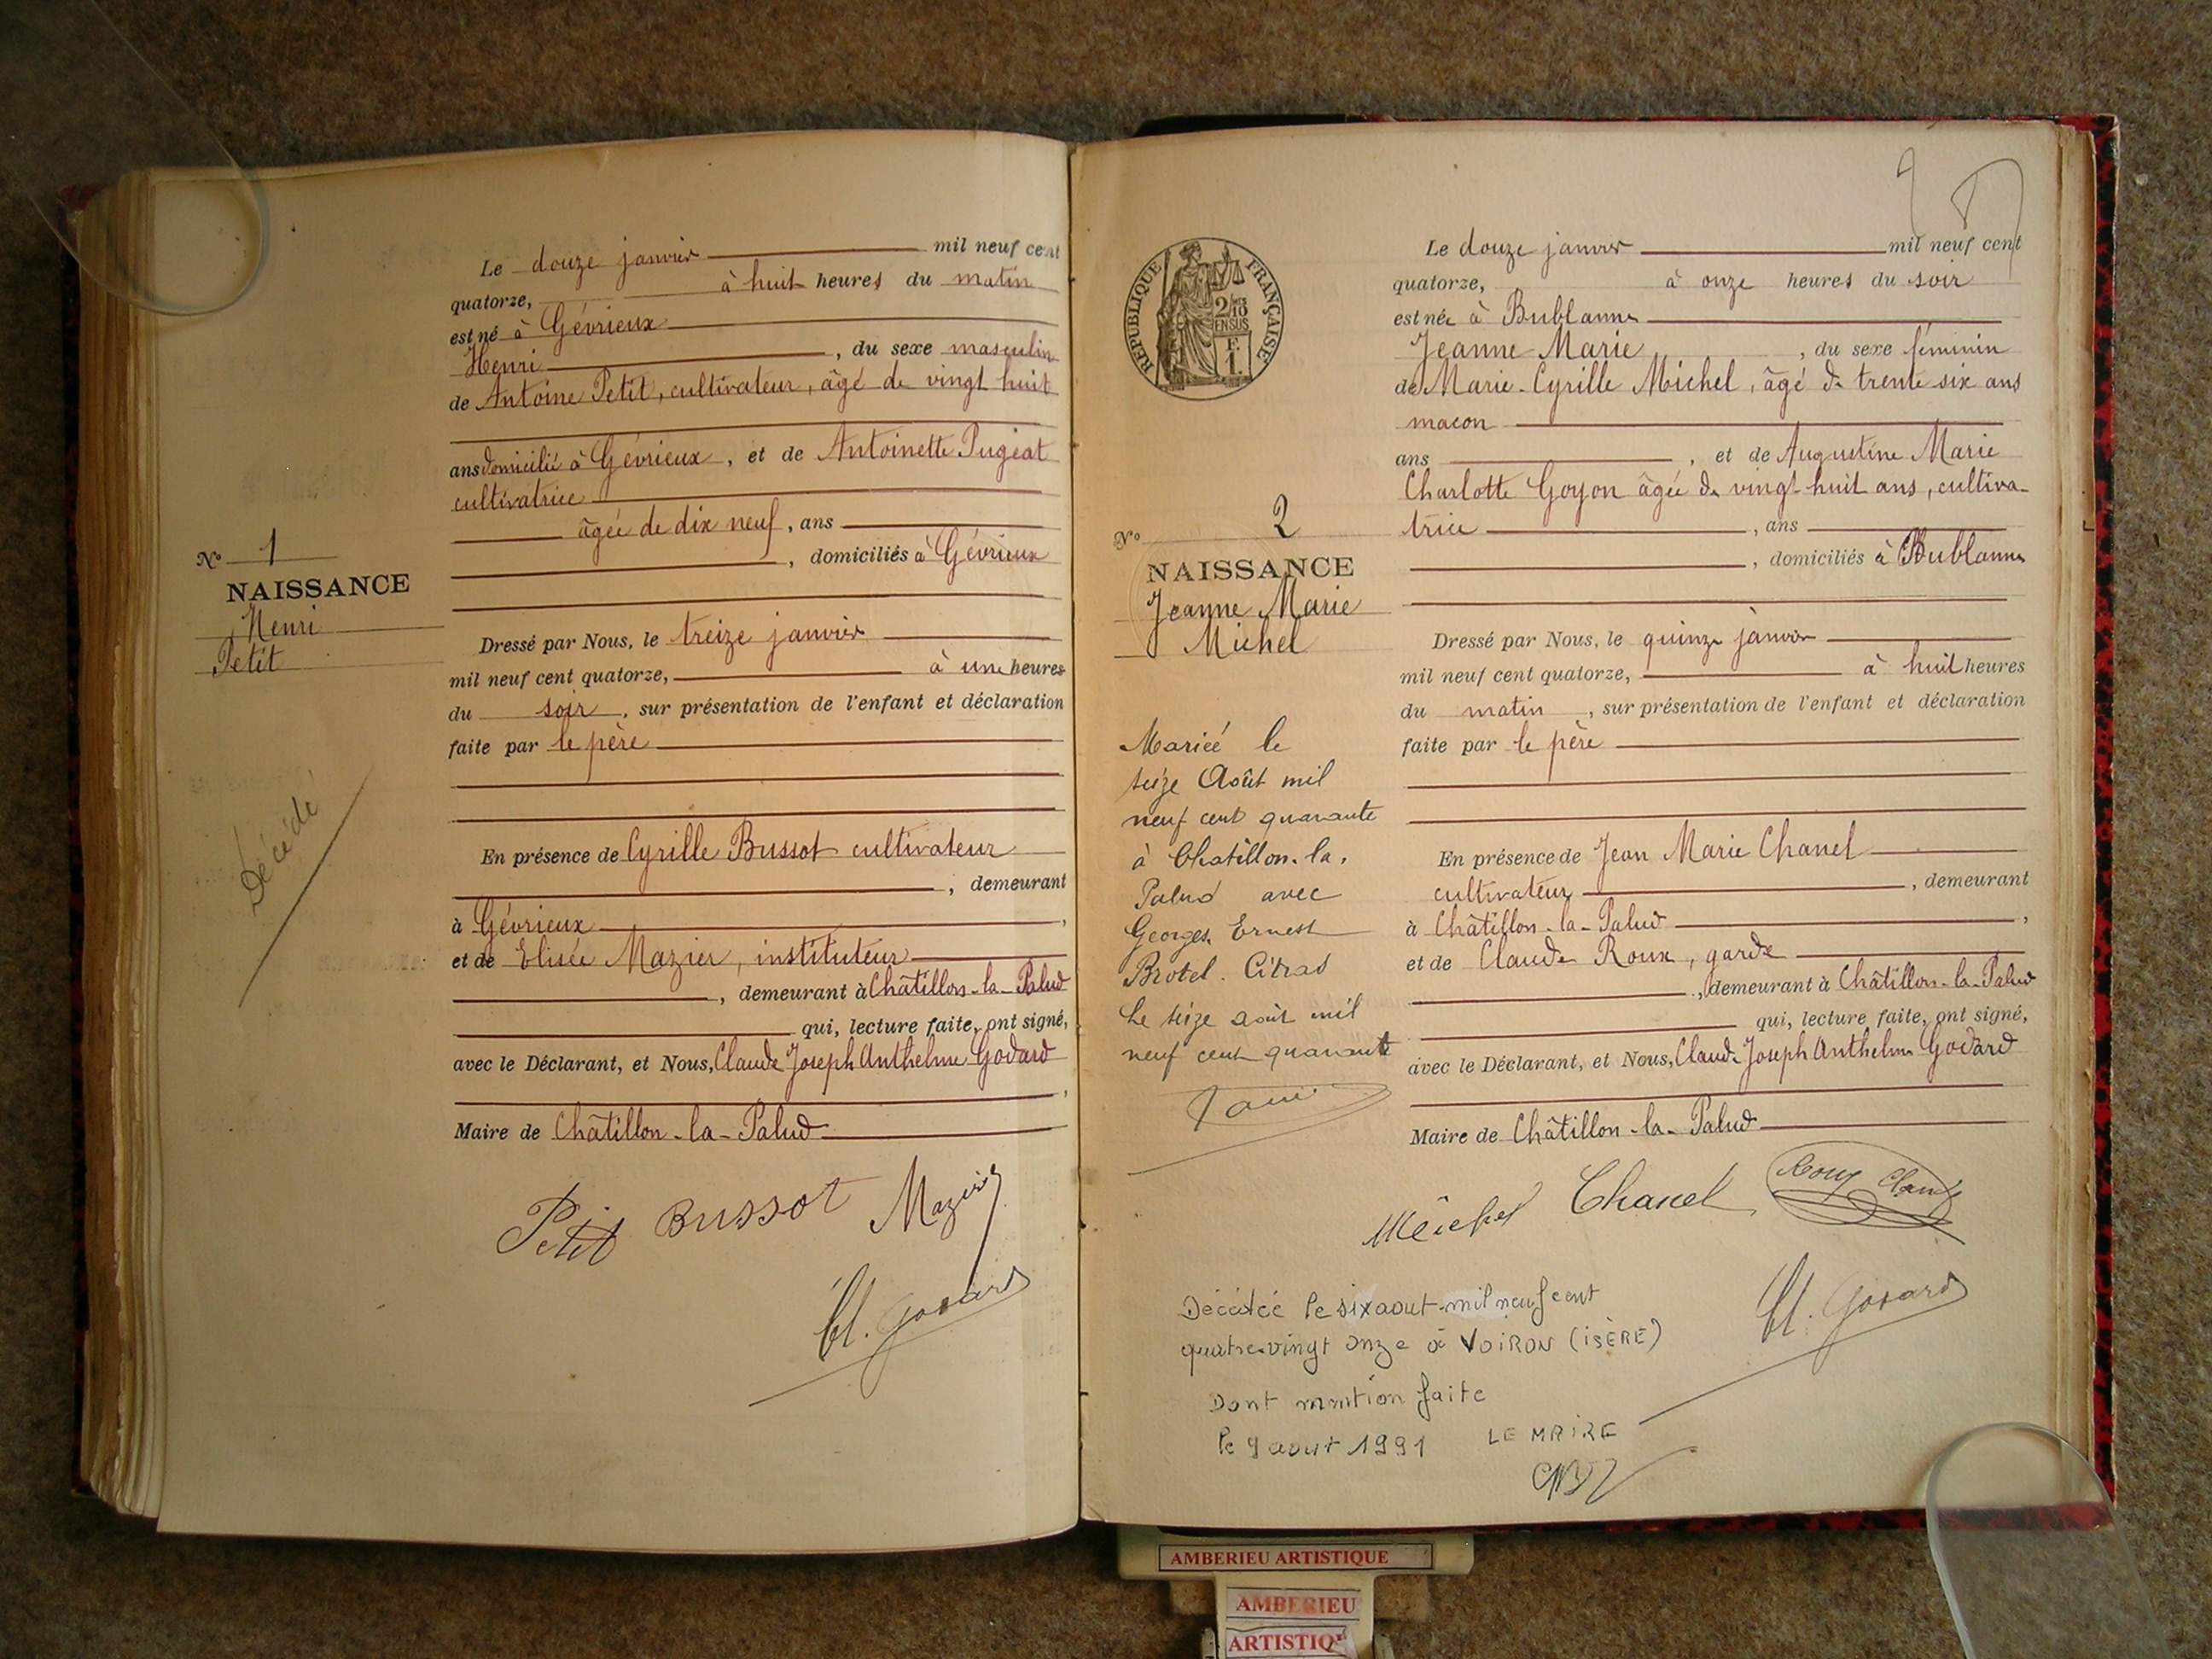 Le douze janvier mil neuf cent
quatorze, à huit heures du matin
est né à Gévrieux
Henri, du sexe masculin
de Antoine Petit, cultivateur, âgé de vingt huit
ans domicilié à Gévrieux, et de Antoinette Pugeat
cultivatrice
âgée de dix neuf, ans
, domiciliés à Gévrieux
N° 1
NAISSANCE
Henri
Petit
Décédé
Dressé par Nous, le treize janvier
mil neuf cent quatorze, à une heures
du soir, sur présentation de l'enfant et déclaration
faite par le père
En présence de Cyrille Bussot cultivateur
, demeurant
à Gévrieux,
et de Elisée Mazier, instituteur
, demeurant à Châtillon-la-Palud
qui, lecture faite, ont signé,
avec le Déclarant, et Nous, Claude Joseph Anthelme Godard
,
Maire de Châtillon-la-Palud
Petit Bussot Mazier
Cl. Godard
RÉPUBLIQUE FRANÇAISE
2/10
EN SUS
F.
1.
Le douze janvier mil neuf cent
quatorze, à onze heures du soir
est née à Bublanne
Jeanne Marie, du sexe féminin
de Marie-Cyrille Michel, âgé de trente six ans
macon
ans, et de Augustine Marie
Charlotte Goyon âgée de vingt-huit ans, cultiva-
trice, ans
, domiciliés à Bublanne
N° 2
NAISSANCE
Jeanne Marie
Michel
Mariée le
seize Août mil
neuf cent quarante
à Chatillon-la-
Palud avec
Georges Ernest
Brotel. Citras
Le seize août mil
neuf cent quarante
Dressé par Nous, le quinze janvier
mil neuf cent quatorze, à huit heures
du matin, sur présentation de l'enfant et déclaration
faite par le père
En présence de Jean Marie Chanel
cultivateur, demeurant
à Châtillon-la-Palud,
et de Claude Roux, garde
, demeurant à Châtillon-la-Palud
qui, lecture faite, ont signé,
avec le Déclarant, et Nous, Claude Joseph Anthelme Godard
Maire de Châtillon-la-Palud
Michel Chanel Roux Claude
Cl. Godard
Décédée le six aout mil neuf cent
quatre vingt onze à VOIRON (ISÈRE)
Dont mention faite
le 9 aout 1991 LE MAIRE
AMBERIEU ARTISTIQUE
AMBERIEU
ARTISTIQ